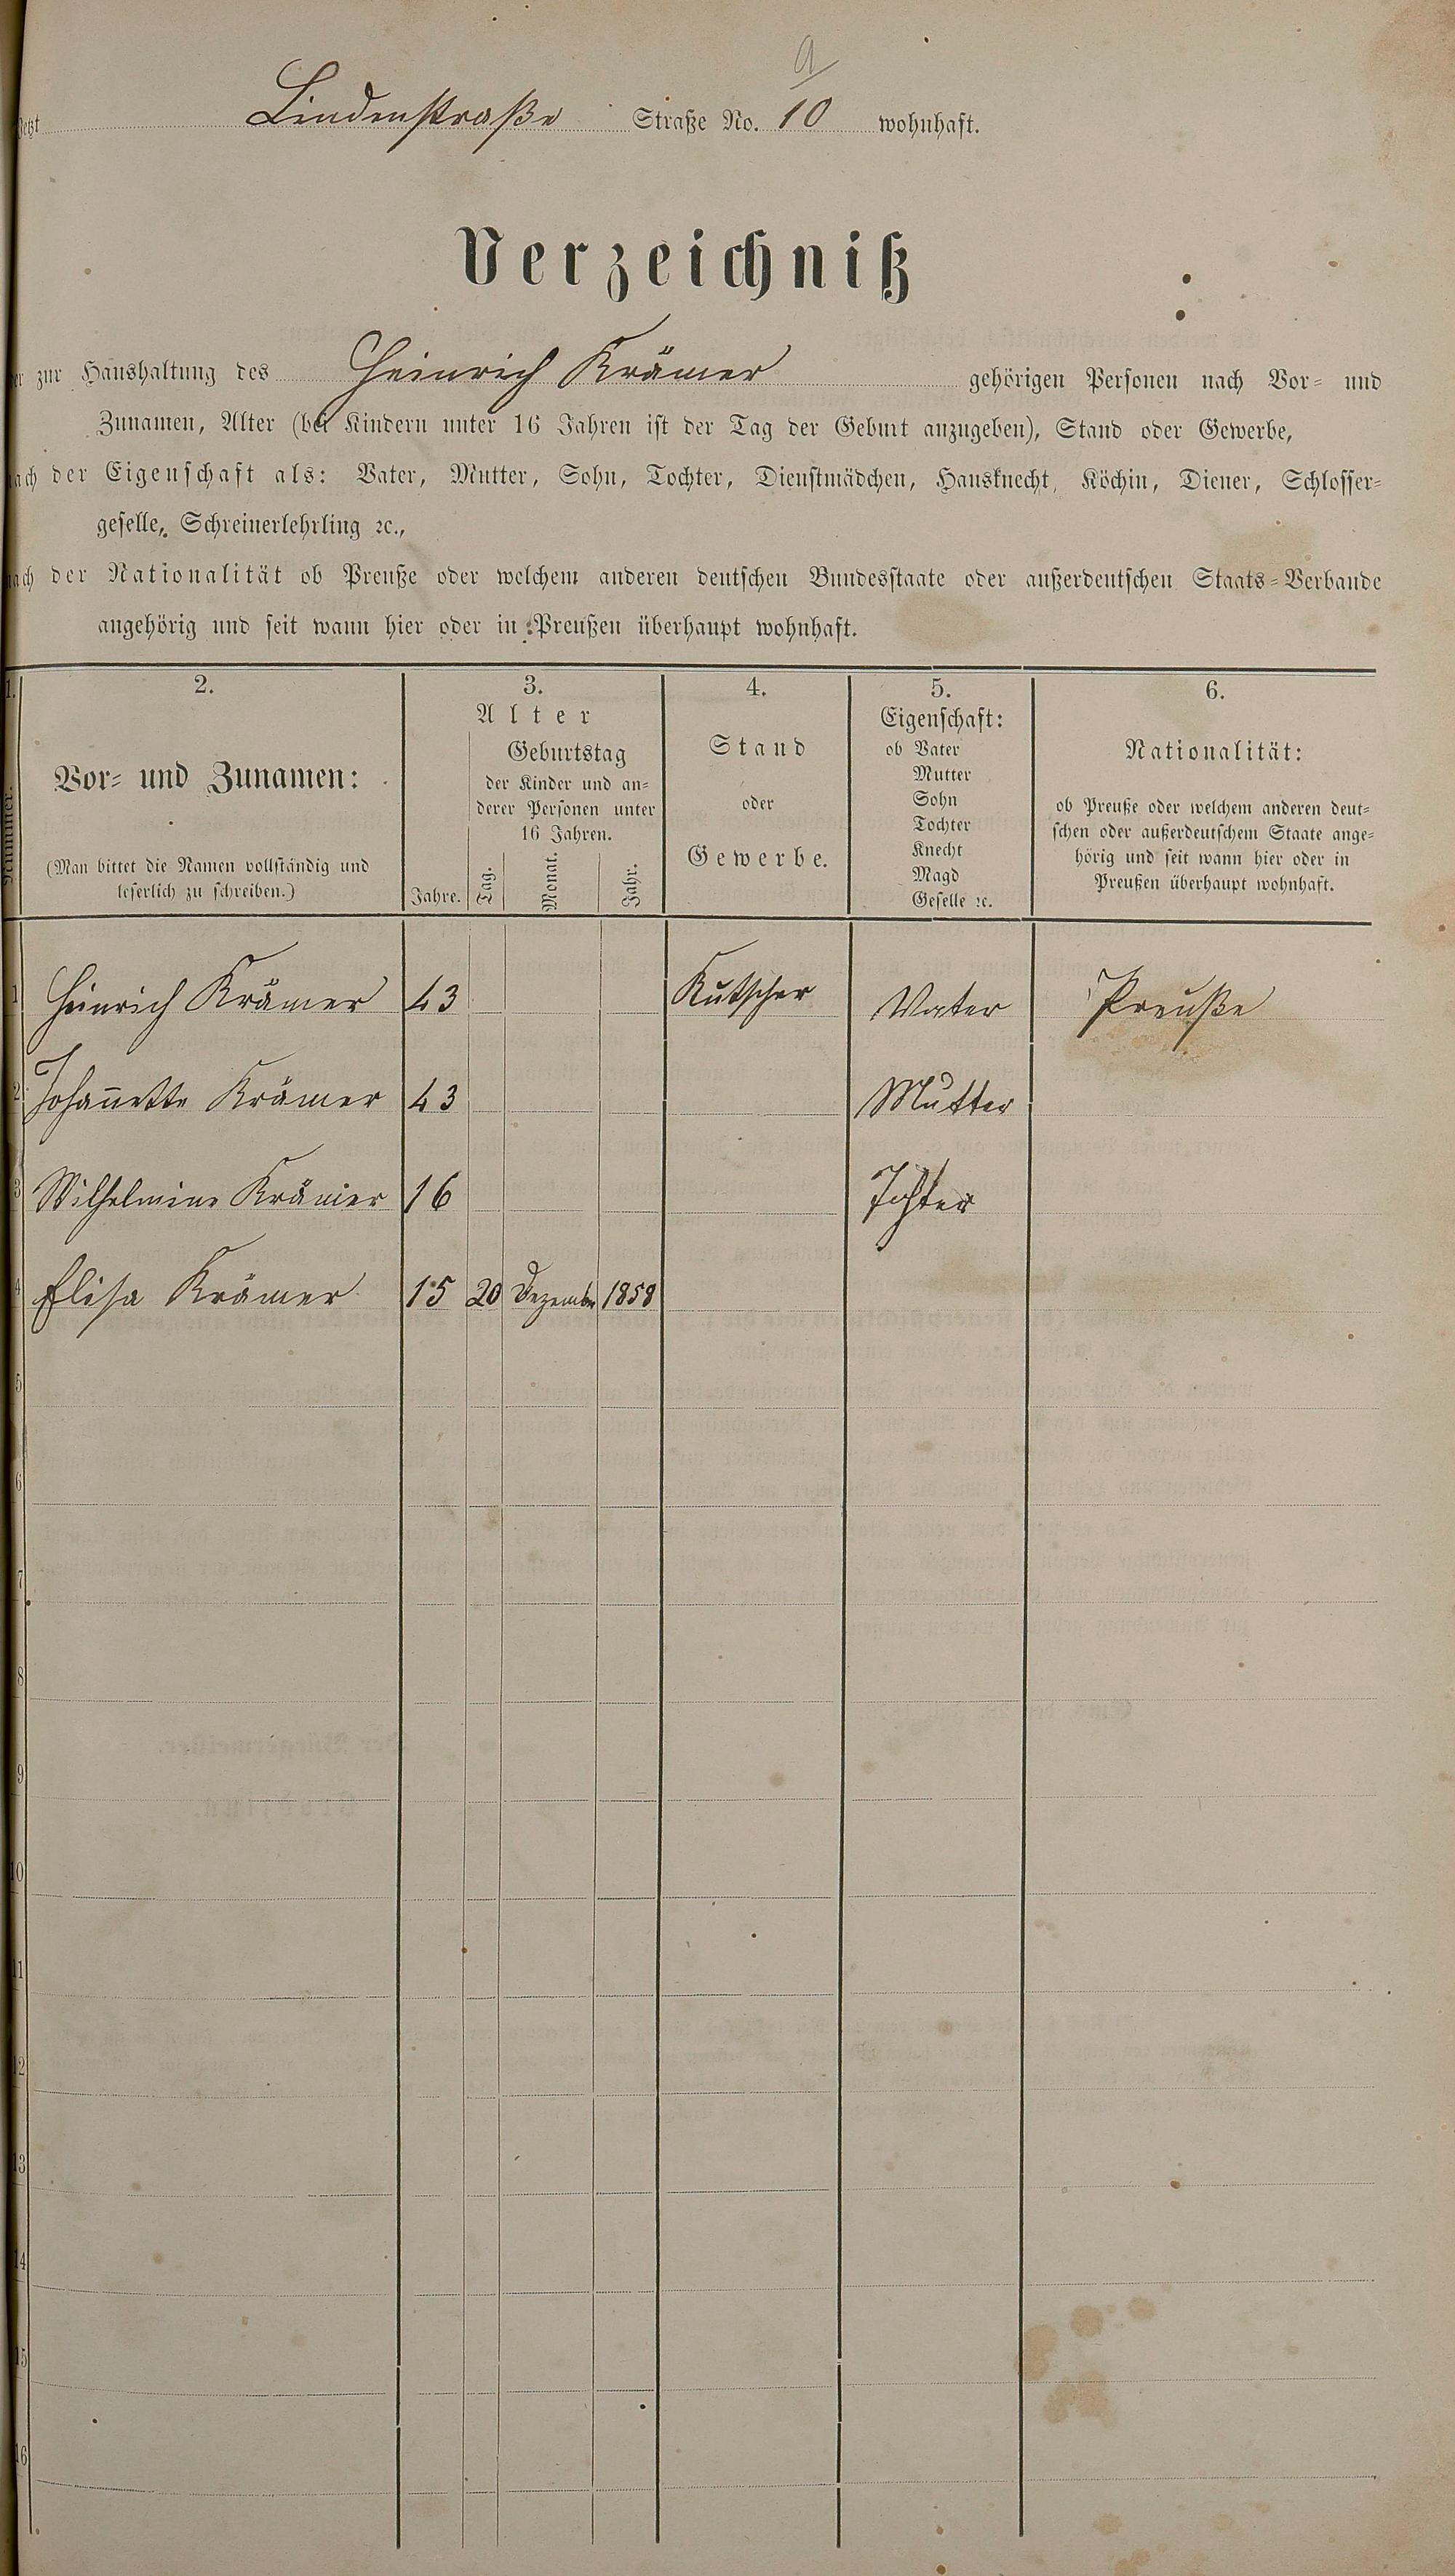 a
jetzt Lindenstraße Straße No. 10 wohnhaft.
Verzeichniß
der zur Haushaltung des Heinrich Krämer gehörigen Personen nach Vor- und
Zunamen, Alter (bei Kindern unter 16 Jahren ist der Tag der Geburt anzugeben), Stand oder Gewerbe,
nach der Eigenschaft als: Vater, Mutter, Sohn, Tochter, Dienstmädchen, Hausknecht, Köchin, Diener, Schlosser-
geselle, Schreinerlehrling ꝛc.,
nach der Nationalität ob Preuße oder welchem anderen deutschen Bundesstaate oder außerdeutschen Staats-Verbande
angehörig und seit wann hier oder in Preußen überhaupt wohnhaft.
1.
Nummer.
2.
Vor- und Zunamen:
(Man bittet die Namen vollständig und
leserlich zu schreiben.)
3.
Alter
Jahre.
Geburtstag
der Kinder und an-
derer Personen unter
16 Jahren.
Tag.
Monat.
Jahr.
4.
Stand
oder
Gewerbe.
5.
Eigenschaft:
ob Vater
Mutter
Sohn
Tochter
Knecht
Magd
Geselle ꝛc.
6.
Nationalität:
ob Preuße oder welchem anderen deut-
schen oder außerdeutschem Staate ange-
hörig und seit wann hier oder in
Preußen überhaupt wohnhaft.
1 Heinrich Krämer 43 Kutscher Vater Preuße
2 Johannette Krämer 43 Mutter
3 Wilhelmine Krämer 16 Tochter
4 Elisa Krämer 15 20 Dezember 1858
5
6
7
8
9
10
11
12
13
14
15
16